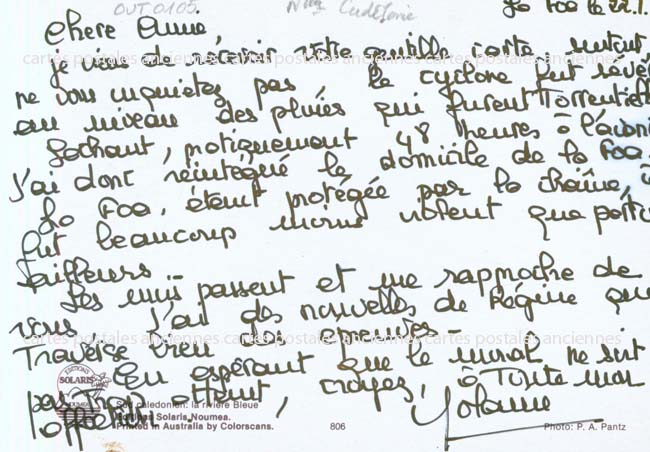 OUT 0105
La Foa le 22.1
Chère Annie,
je viens de recevoir votre gentille carte surtout
ne vous inquietez pas, le cyclone fut révé
au niveau des pluies qui furent Torrentiell
Sachant, pratiquement 48 heures à l'avan
J'ai donc réintégré le domicile de la Foa.
La Foa, étant protégée par la chaîne,
fut beaucoup moins violent que par
ailleurs.
Les mois passent et me rapproche de
vous. J'ai des nouvelles de Régine que
Traverse bien des épreuves -
En espérant que le moral ne soit
pas trop atteint, croyez, à Toute mon
affection
Yolanne
cartes postales anciennes cartes postales anciennes cartes postales anciennes
cartes postales anciennes cartes postales anciennes cartes postales anciennes
EDITIONS
SOLARIS
NOUMEA
calédonien: la rivière Bleue
Editions Solaris Noumea.
Printed in Australia by Colorscans.
806
Photo: P. A. Pantz